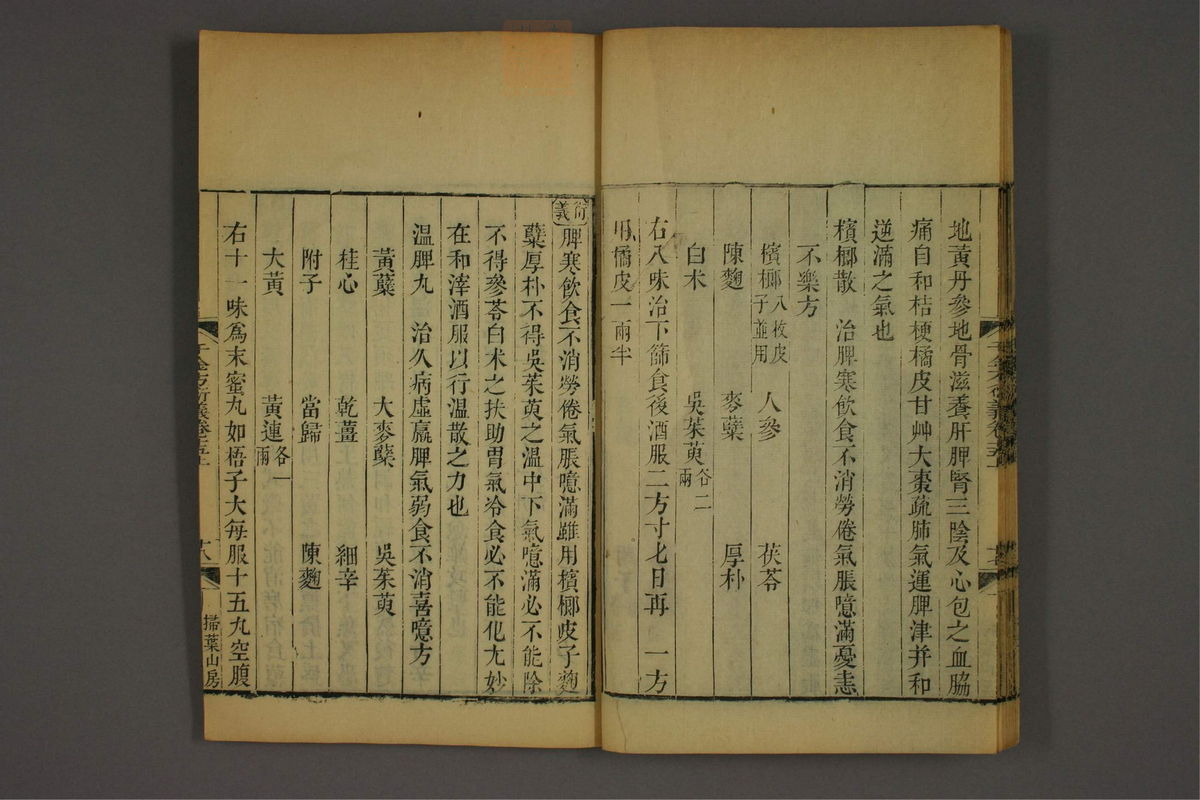 地黃丹參地骨滋養肝脾腎三陰及心包之血脇
痛自和桔梗橘皮甘艸大棗疏肺氣運脾津并和
逆滿之氣也
檳榔散　治脾寒飲食不消勞倦氣脹噫滿憂恚
不樂方
檳榔八枚皮子並用　人參　茯苓
陳麴　麥蘗　厚朴
白朮　吳茱萸各二兩
右八味治下篩食後酒服二方寸匕日再　一方
用橘皮一兩半
衍義脾寒飲食不消勞倦氣脹噫滿雖用檳榔皮子麴
蘗厚朴不得吳茱萸之溫中下氣噫滿必不能除
不得參苓白朮之扶助胃氣冷食必不能化尢妙
在和滓酒服以行溫散之力也
溫脾丸　治久病虛羸脾氣弱食不消喜噫方
黃蘗　大麥蘗　吳茱萸
桂心　乾薑　細辛
附子　當歸　陳麴
大黃　黃連各一兩
右十一味為末蜜丸如梧子大每服十五丸空腹
千金方衍義卷十五上　十八　掃葉山房